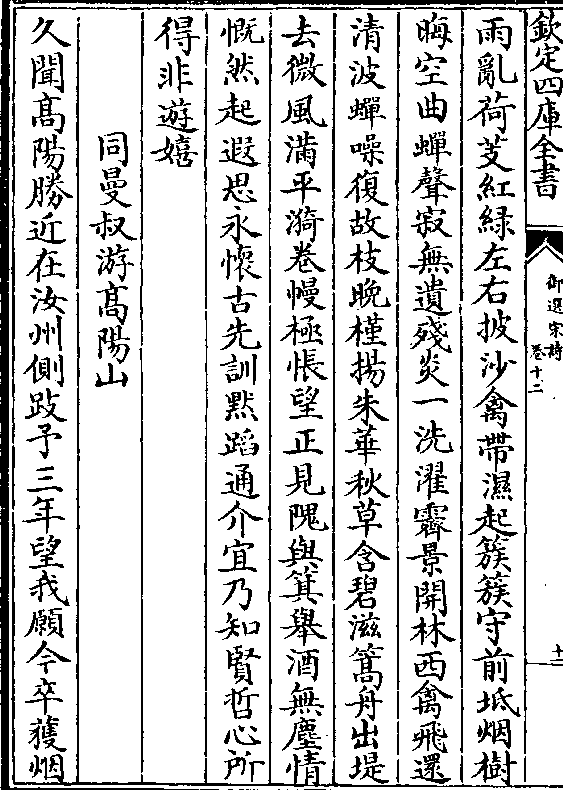 欽定四庫全書
御選宋詩
卷十二
十二
雨亂荷芰紅緑左右披沙禽帶濕起簇簇守前坻烟樹
晦空曲蟬聲寂無遺殘炎一洗濯霽景開林西禽飛還
清波蟬噪復故枝晚槿揚朱華秋草含碧滋篙舟出堤
去微風滿平漪卷幔極悵望正見隗與箕舉酒無塵情
慨然起遐思永懷古先訓黙蹈通介宜乃知賢哲心所
得非遊嬉
同曼叔游髙陽山
久聞髙陽勝近在汝州側跂予三年望我願今卒獲烟